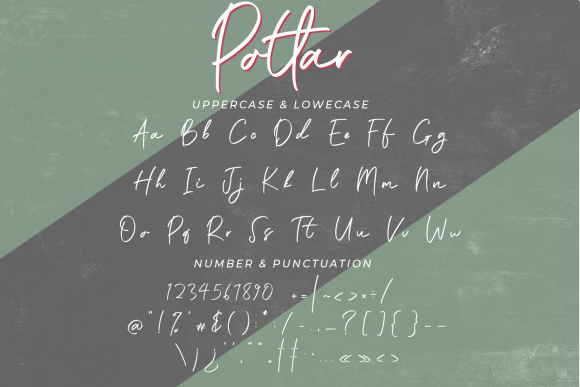 Pottar
UPPERCASE & LOWECASE
Aa Bb Cc Dd Ee Ff Gg
Hh Ii Jj Kk Ll Mm Nn
Oo Pq Rr Ss Tt Uu Vv Ww
NUMBER & PUNCTUATION
1234567890 +=|~<>×÷/
@"(%'#&():*;/-.,_?[]{}--
\)¿'','"".††··...«»<>